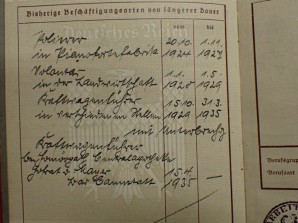 Bisherige Beschäftigungsarten von längerer Dauer
vom bis
20.10. 1.11.
in Pianofortefabrik 1924 1927
Volontär 1.1. 1.5.
in der Landwirtschaft 1928 1929
Kraftwagenführer 15.10. 31.3.
in verschiedenen Stellen 1929 1935
mit Unterbrechg.
Kraftwagenführer
Centralapotheke
15.4.
Bad Cannstatt 1935 —
Berufsgrupp
Berufsart